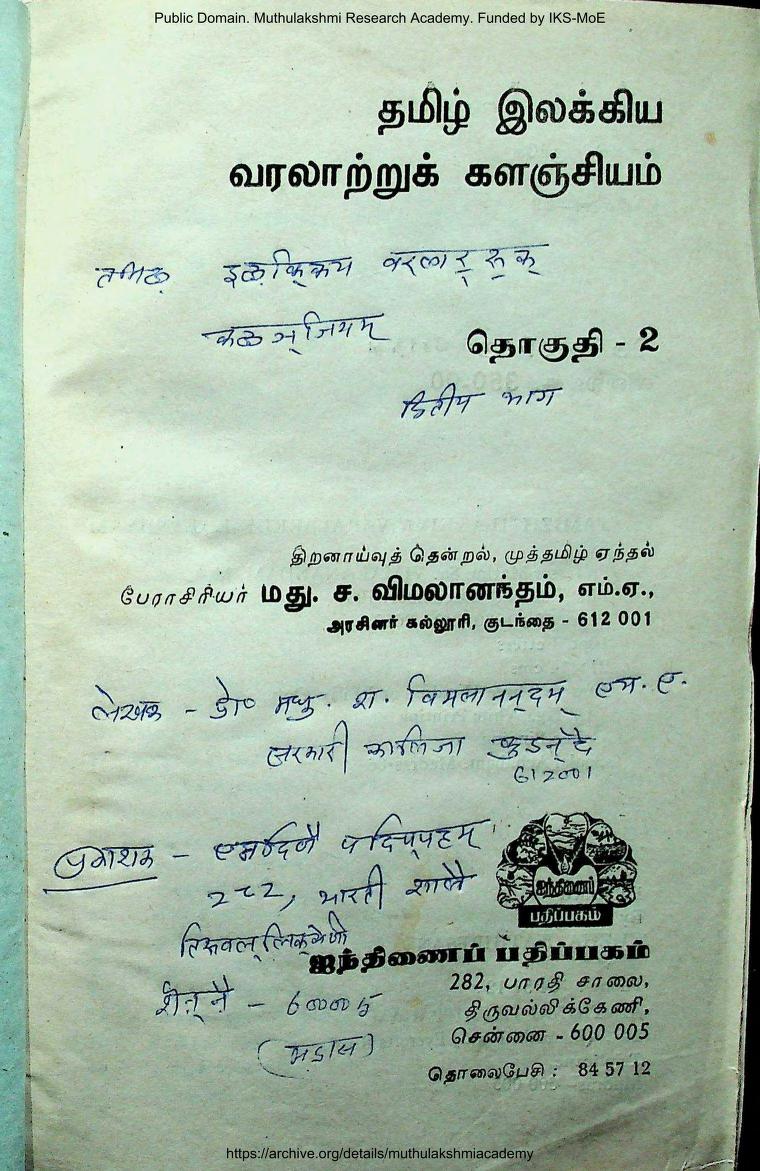 Public Domain. Muthulakshmi Research Academy. Funded by IKS-MoE
தமிழ் இலக்கிய
வரலாற்றுக் களஞ்சியம்
तमिळ इळक्किय वरलाट्रुक्
कळञ्जियम्
தொகுதி - 2
द्वितीय भाग
திறனாய்வுத் தென்றல், முத்தமிழ் ஏந்தல்
பேராசிரியர் மது. ச. விமலானந்தம், எம்.ஏ.,
அரசினர் கல்லூரி, குடந்தை - 612 001
लेखक - डॉ० मधु. श. विमलानन्दम् एम. ए.
सरकारी कालिजा कुडन्दै
612001
प्रकाशक -
२८२, भारती शालै
ஐந்திணைப்
பதிப்பகம்
ஐந்திணைப் பதிப்பகம்
282, பாரதி சாலை,
திருவல்லிக்கேணி,
சென்னை - 600 005
शेन्नै - 600005
(मद्रास)
தொலைபேசி : 84 57 12
https://archive.org/details/muthulakshmiacademy